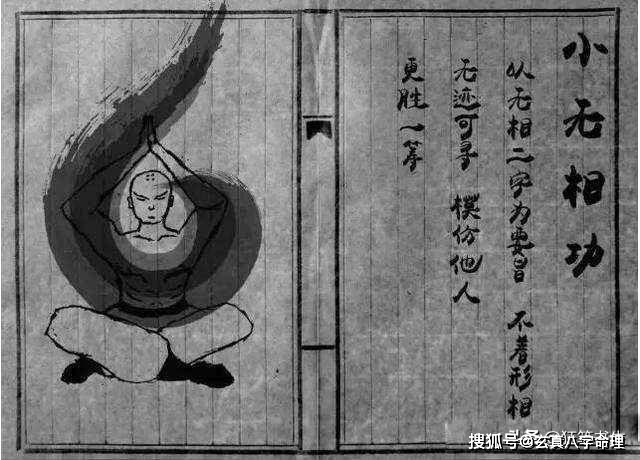 小无相功
以无相二字为要旨 不着形相
无迹可寻 模仿他人
更胜一筹
搜狐号@玄真八字命理